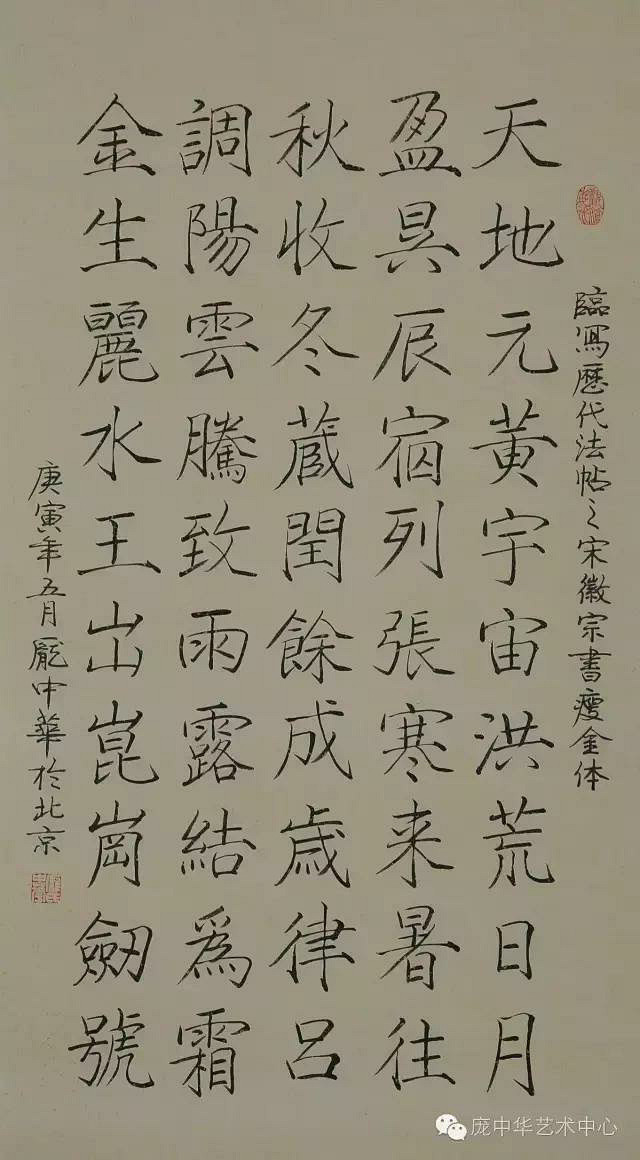 臨寫歷代法帖之宋徽宗書瘦金体
天地元黄宇宙洪荒日月
盈昃辰宿列張寒来暑往
秋收冬蔵閏餘成歲律呂
調陽雲騰致雨露結爲霜
金生麗水王出崑崗劒號
庚寅年五月龐中華於北京
庞中华艺术中心